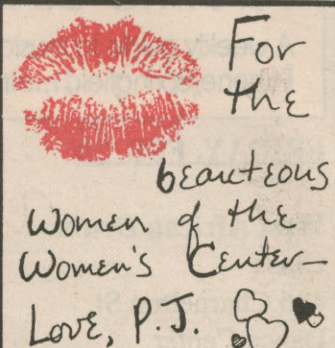 For
the
beauteous
Women of the
Women's Center—
Love, P.J.